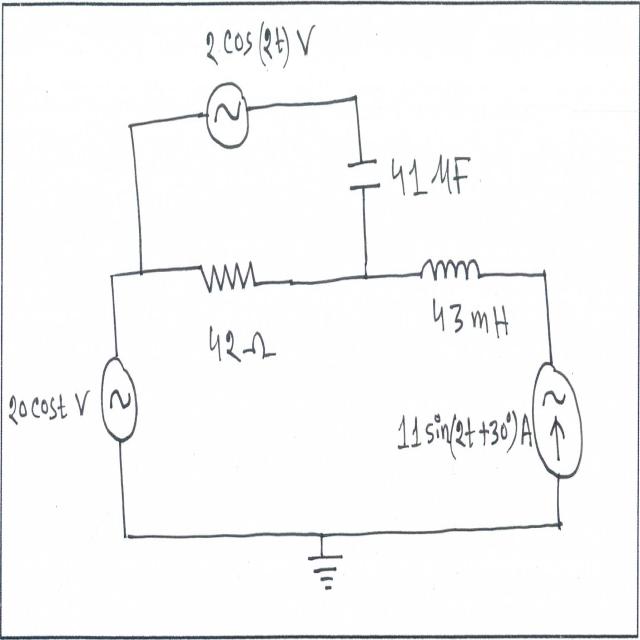 2 cos(2t) V
41 MF
42 Ω
43 mH
20 cost V
11 sin(2t+30°) A